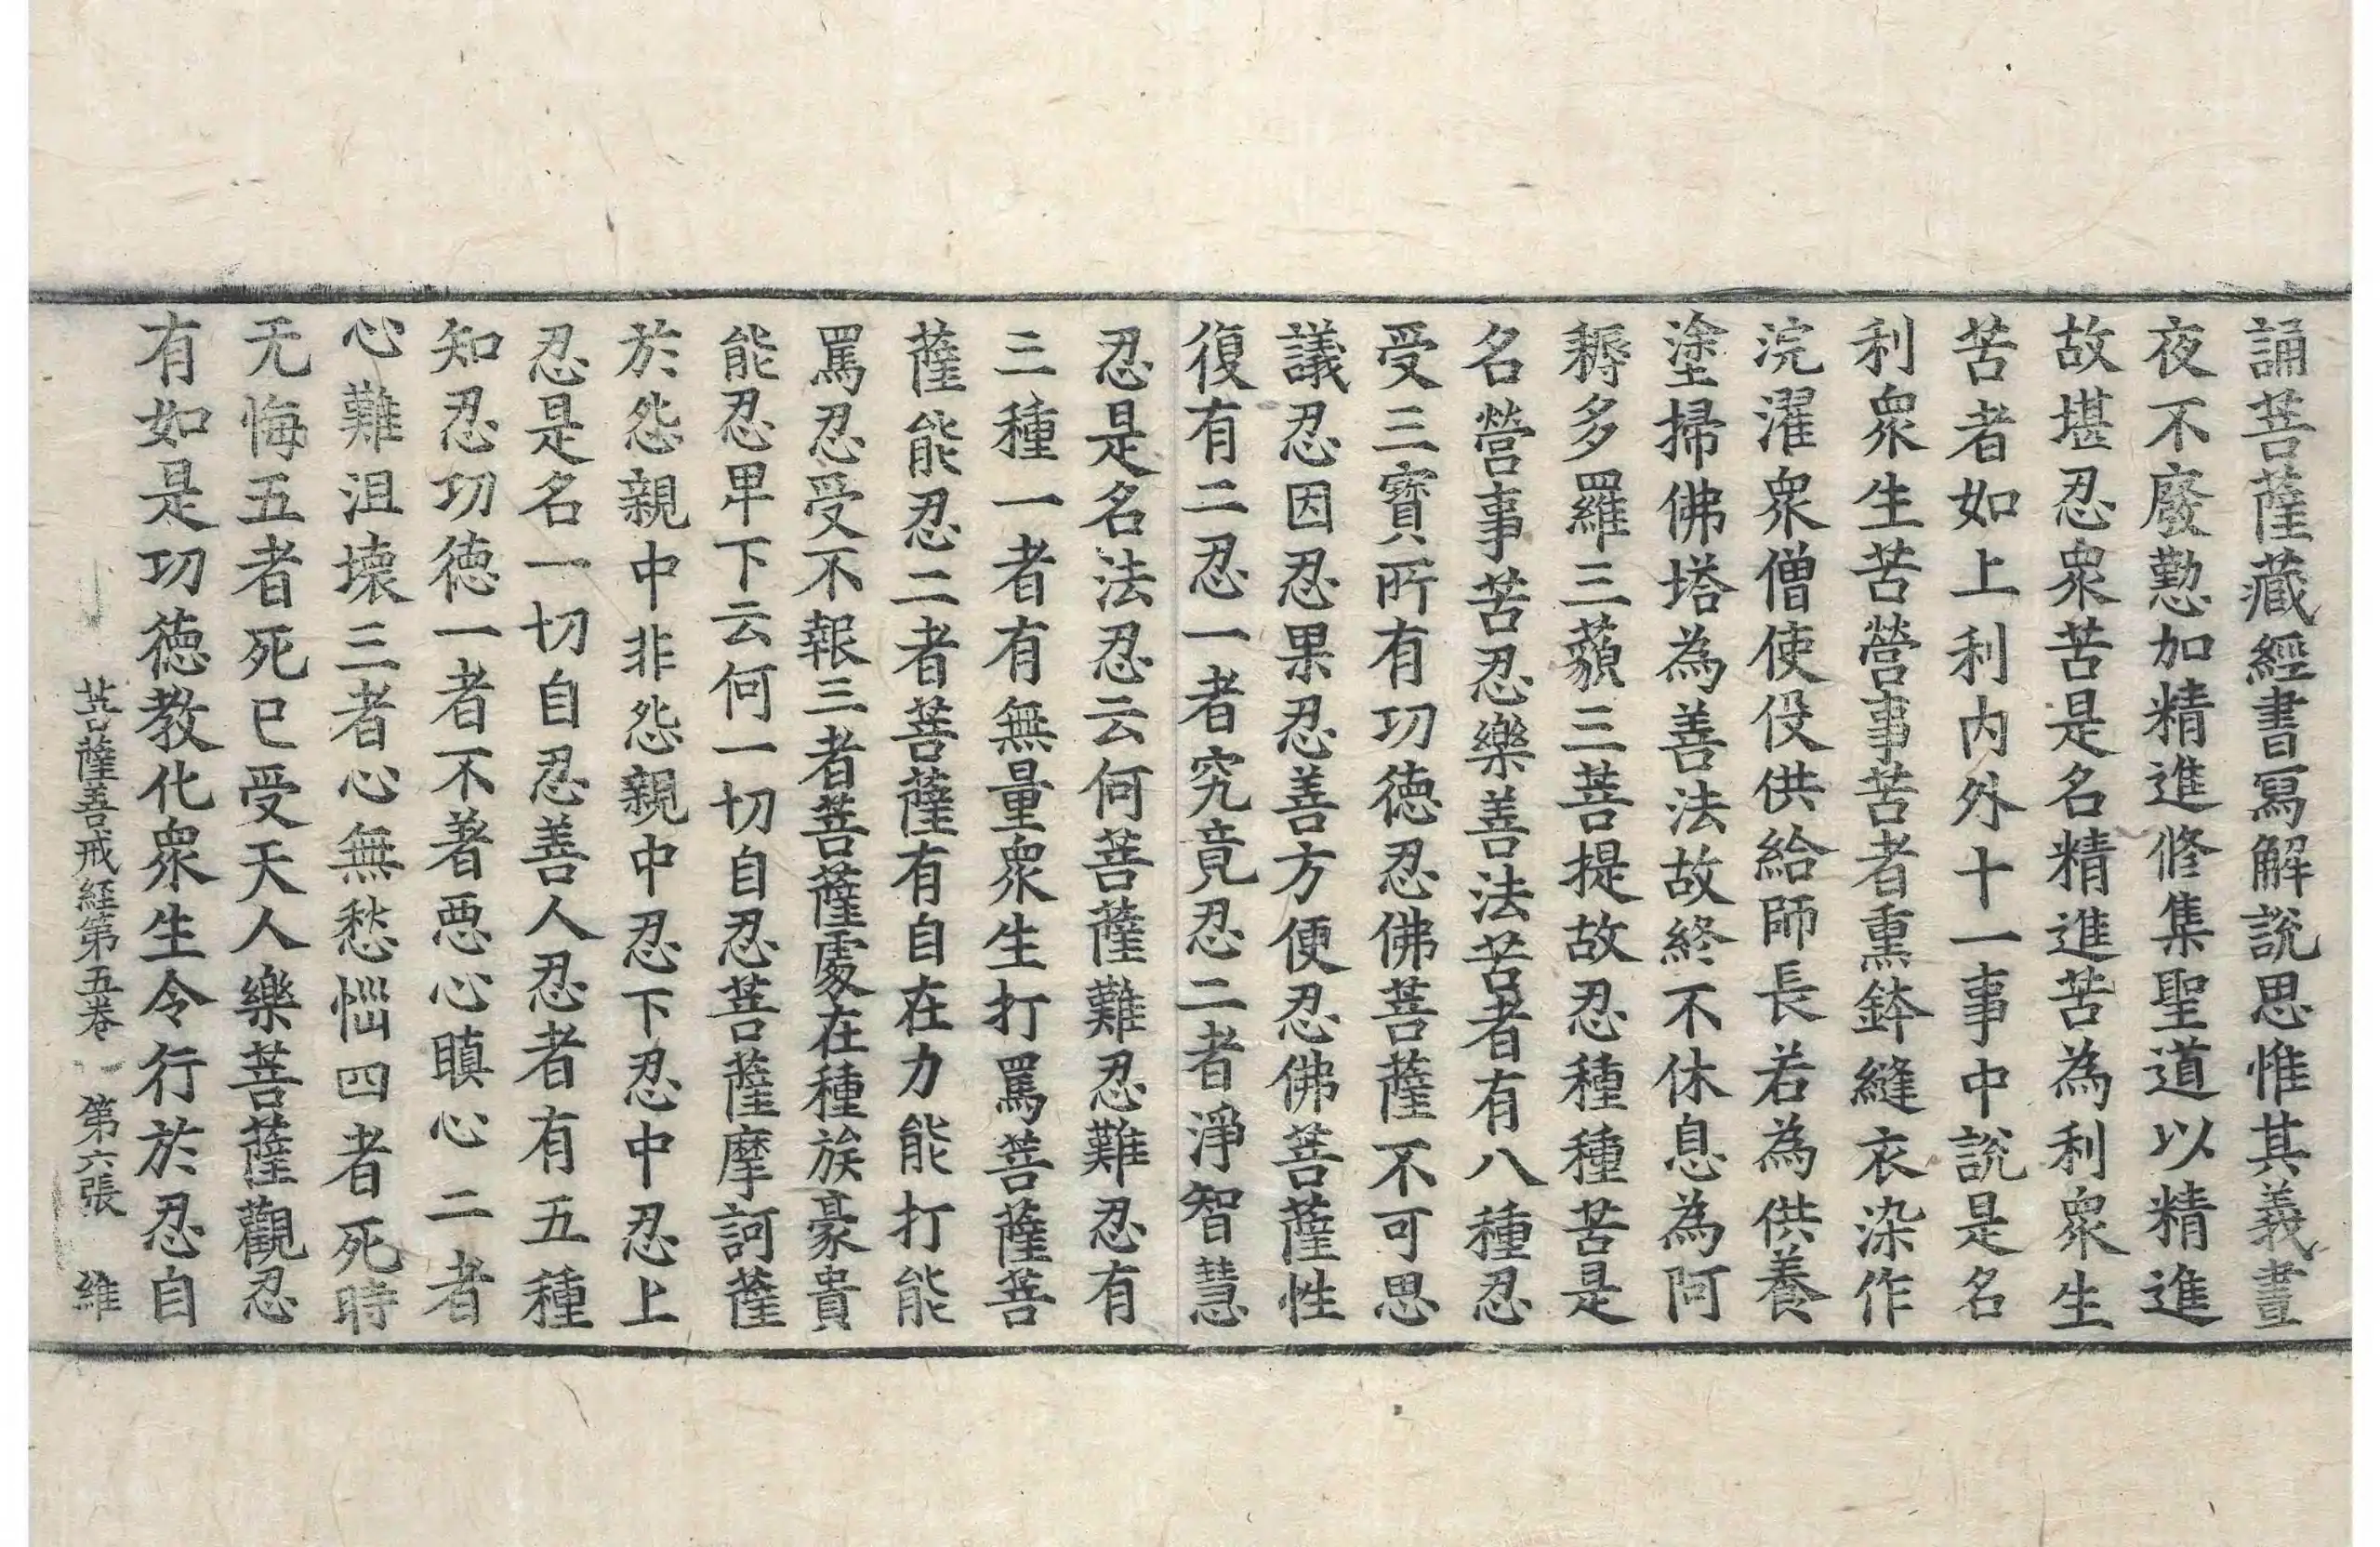 誦菩薩藏經書寫解說思惟其義晝
夜不廢懃加精進修集聖道以精進
故堪忍衆苦是名精進苦為利衆生
苦者如上利内外十一事中說是名
利衆生苦營事苦者熏鉢縫衣染作
浣濯衆僧使役供給師長若為供養
塗掃佛塔為善法故終不休息為阿
耨多羅三藐三菩提故忍種種苦是
名營事苦忍樂善法苦者有八種忍
受三寶所有功德忍佛菩薩不可思
議忍因忍果忍善方便忍佛菩薩性
復有二忍一者究竟忍二者淨智慧
忍是名法忍云何菩薩難忍難忍有
三種一者有無量衆生打罵菩薩菩
薩能忍二者菩薩有自在力能打能
罵忍受不報三者菩薩處在種族豪貴
能忍卑下云何一切自忍菩薩摩訶薩
於怨親中非怨親中忍下忍中忍上
忍是名一切自忍善人忍者有五種
知忍功德一者不著惡心瞋心二者
心難沮壞三者心無愁惱四者死時
无悔五者死已受天人樂菩薩觀忍
有如是功德教化衆生令行於忍自
菩薩善戒經第五卷　第六張　維